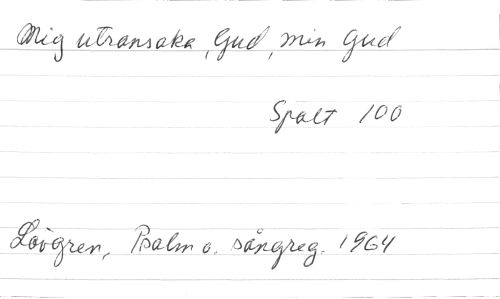 Mig utransaka, Gud, min Gud
Spalt 100
Lövgren, Psalm o. sångreg. 1964